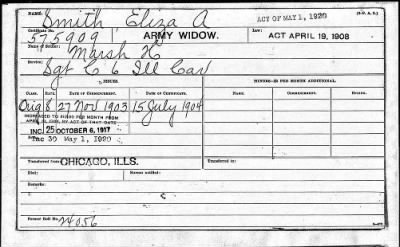 NAME: Smith Eliza A ACT OF MAY 1, 1920
Certificate No. 575909 ARMY WIDOW. LAW: ACT APRIL 19, 1908
Name of Soldier: Marsh H
Service: Sgt C. 6 Ill Cav
ISSUES. MINORS—$2 PER MONTH ADDITIONAL.
CLASS. RATE. DATE OF COMMENCEMENT. DATE OF CERTIFICATE.
Orig 8 27 Nov 1903 15 July 1904
INCREASED TO $12.00 PER MONTH FROM
APRIL 19, 1908, BY ACT OF THAT DATE
INC. 25 OCTOBER 6, 1917
Inc 30 May 1, 1920
Transferred from CHICAGO, ILLS. Transferred to
Died: Bureau notified:
Remarks:
Former Roll No. 24056